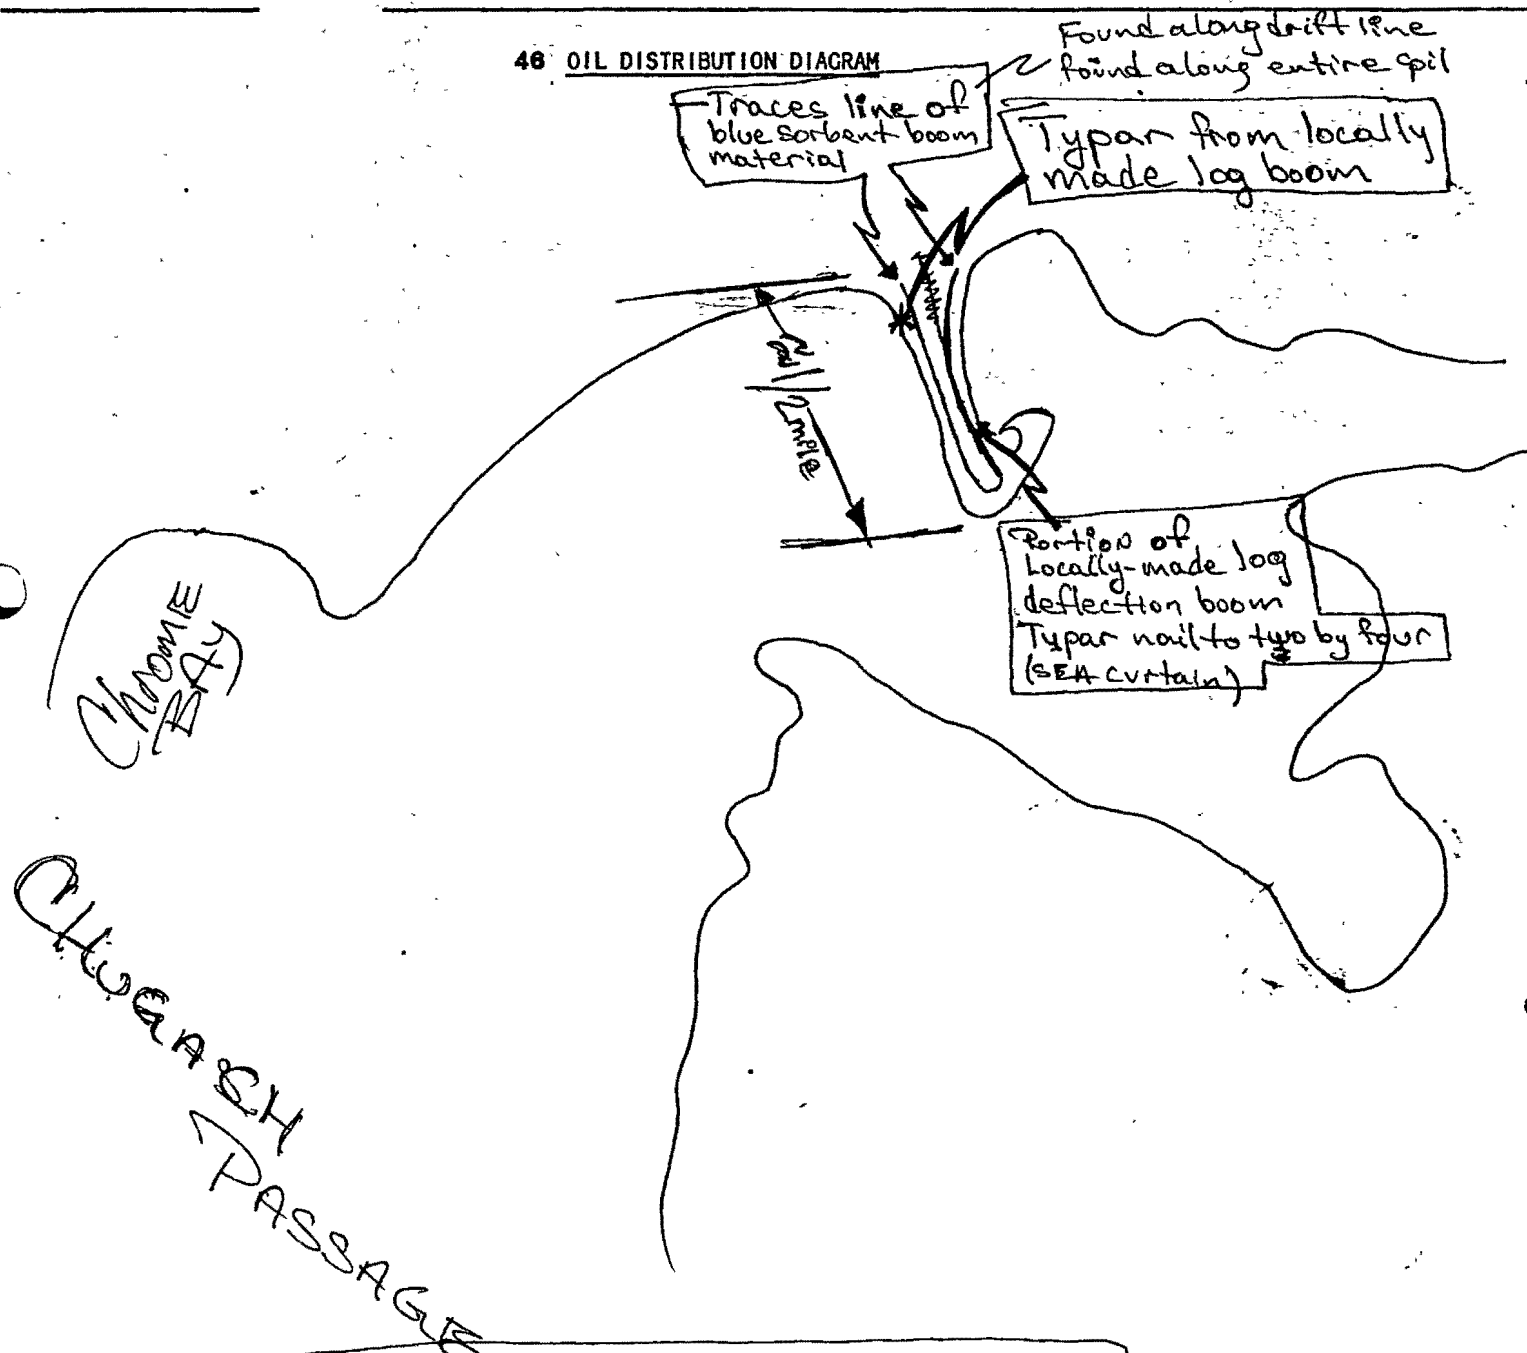 46 OIL DISTRIBUTION DIAGRAM
Found along drift line
found along entire spil
Traces line of
blue sorbent boom
material
Typar from locally
made log boom
1/2 mile
Portion of
Locally-made log
deflection boom
Typar nail to two by four
(SEA curtain)
Chrome
BAy
CHUGACH
PASSAGE